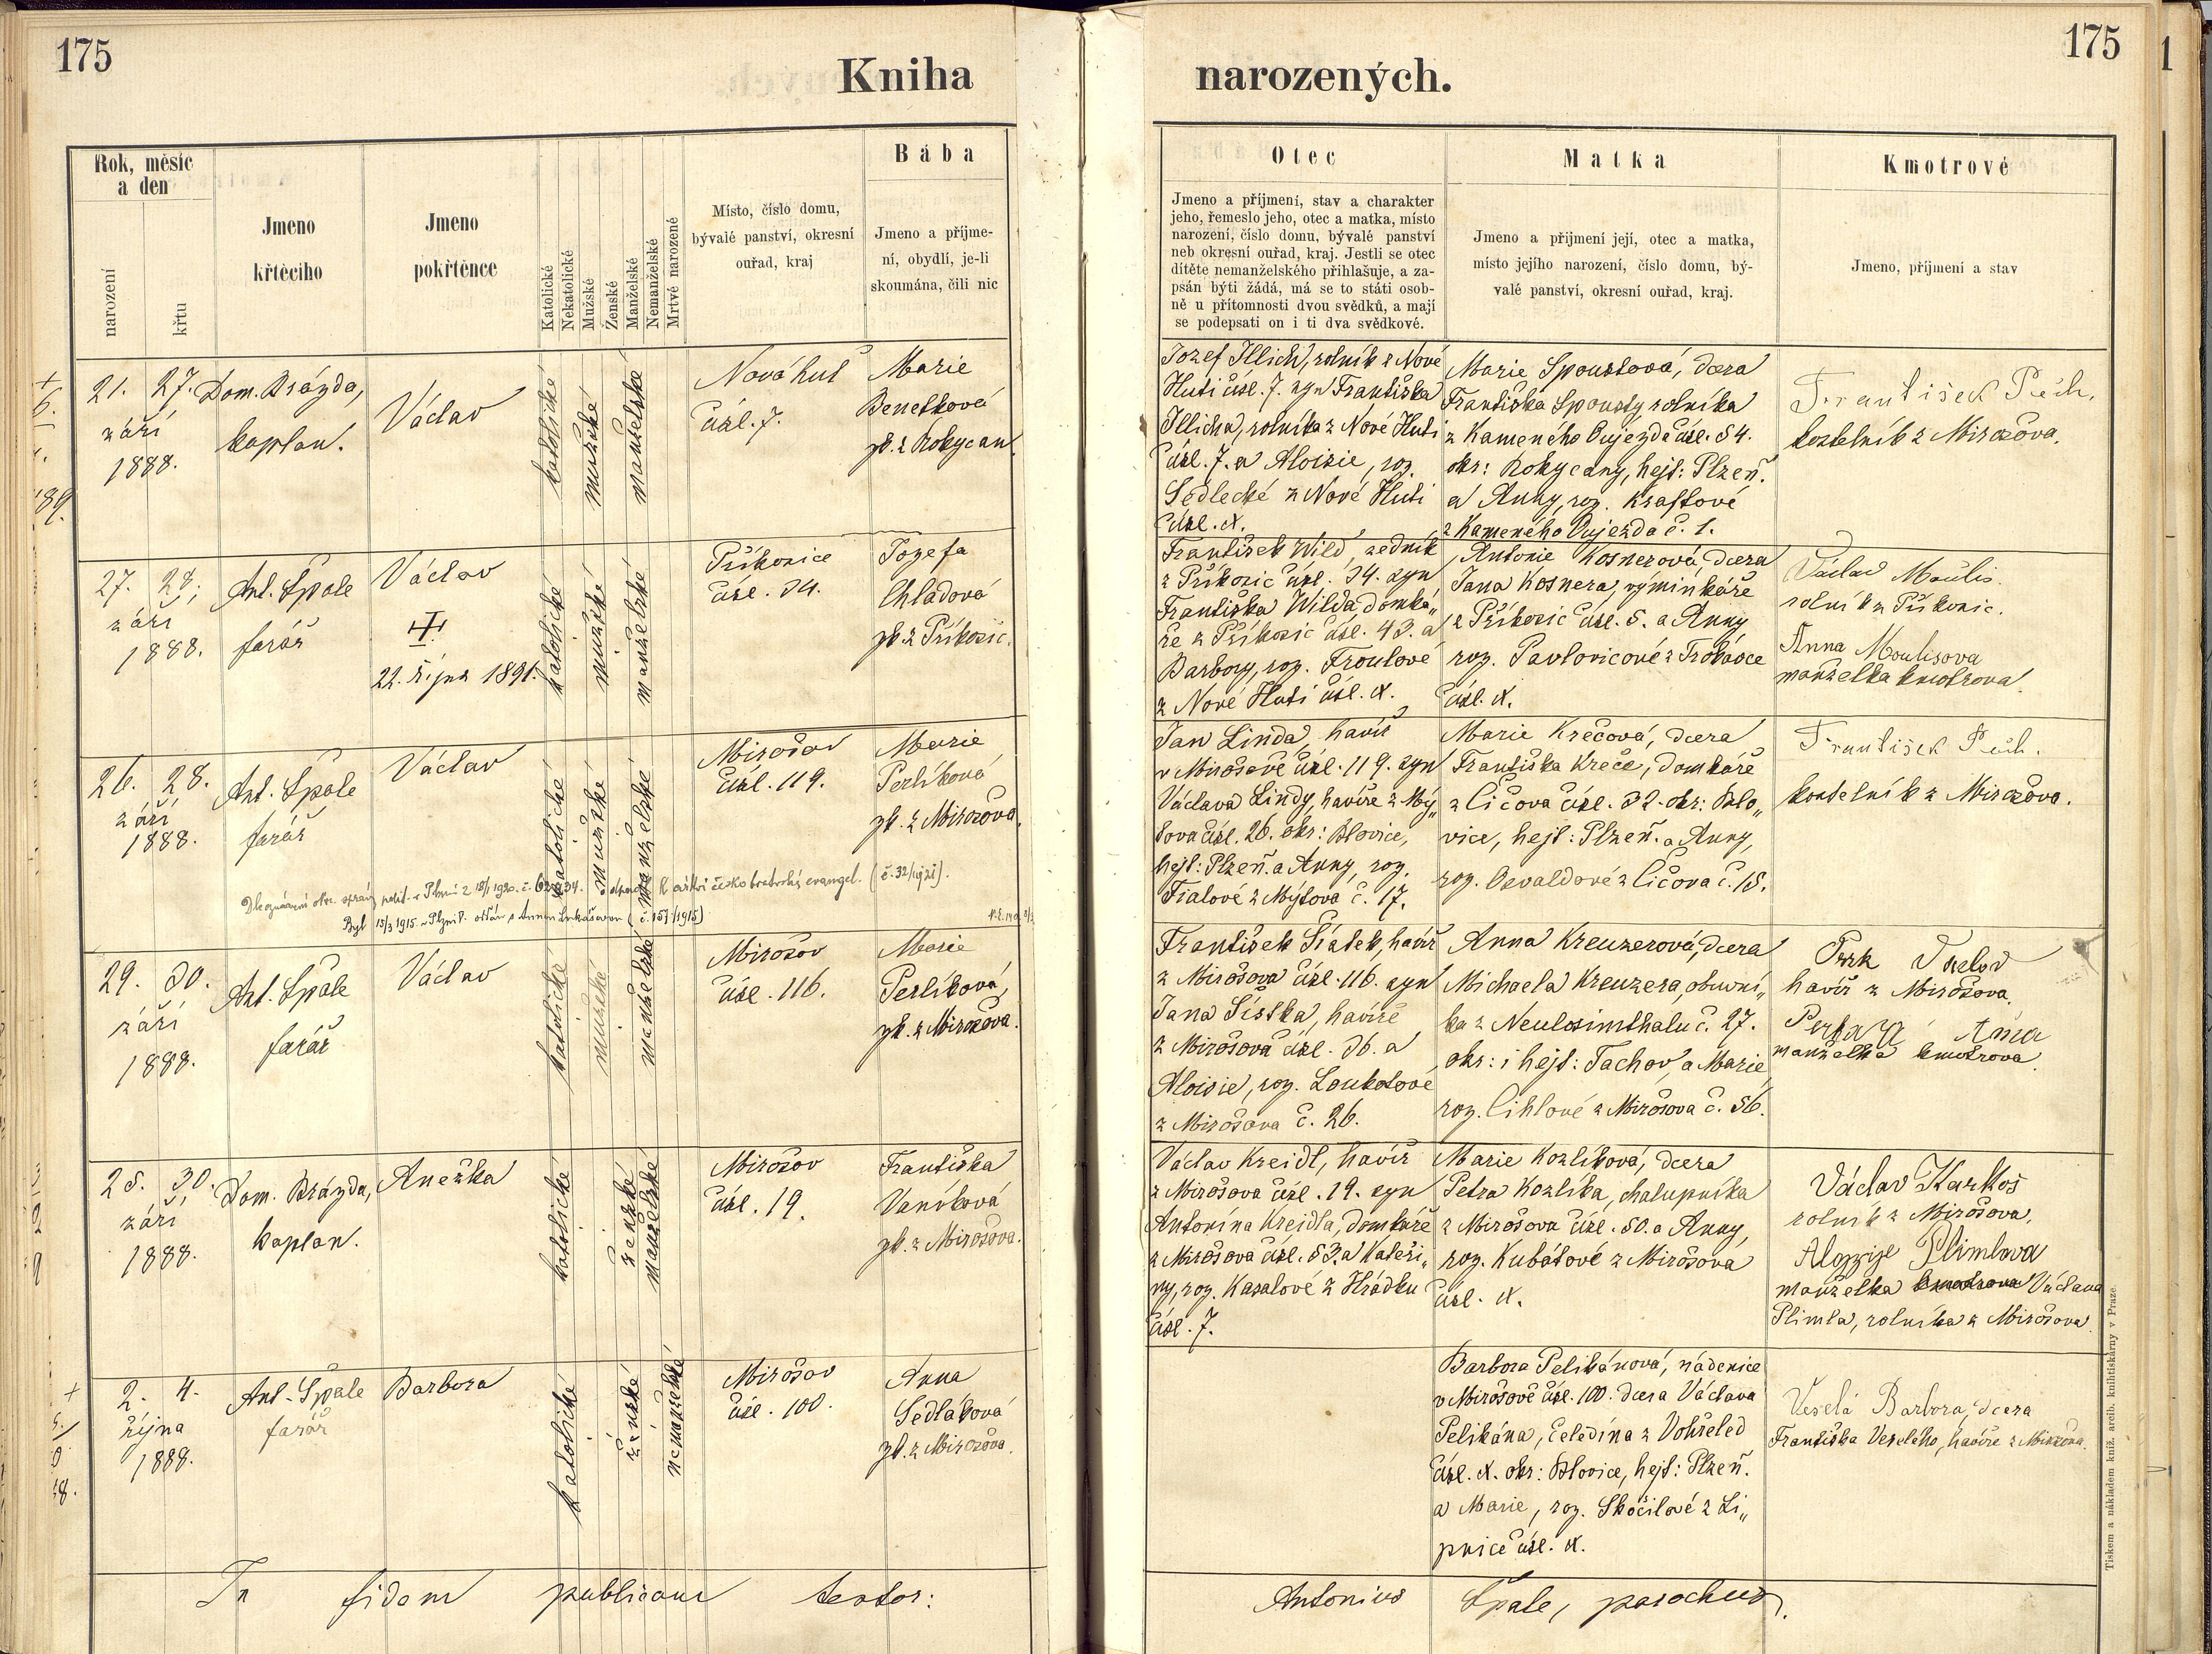 175
Kniha
narozených.
175
1
Rok, měsíc
a den
narození
křtu
Jmeno
křtěcího
Jmeno
pokřtěnce
Katolické
Nekatolické
Mužské
Ženské
Manželské
Nemanželské
Mrtvé narozené
Místo, číslo domu,
bývalé panství, okresní
ouřad, kraj
Bába
Jmeno a příjme-
ní, obydlí, je-li
skoumána, čili nic
Otec
Jmeno a příjmení, stav a charakter
jeho, řemeslo jeho, otec a matka, místo
narození, číslo domu, bývalé panství
neb okresní ouřad, kraj. Jestli se otec
dítěte nemanželského přihlašuje, a za-
psán býti žádá, má se to státi osob-
ně u přítomnosti dvou svědků, a mají
se podepsati on i ti dva svědkové.
Matka
Jmeno a přijmení její, otec a matka,
místo jejího narození, číslo domu, bý-
valé panství, okresní ouřad, kraj.
Kmotrové
Jmeno, příjmení a stav
21. 27.
září
1888.
Dom. Brázda,
kaplan.
Václav
katolické
mužské
manželské
Nová huť
čísl. 7.
Marie
Benetková
zk. z Rokycan.
Jozef Illich, rolník z Nové
Huti čísl. 7. syn Františka
Illicha, rolníka z Nové Huti
čísl. 7. a Aloisie, roz.
Sedlecké z Nové Huti
čísl. X.
Marie Spoustová, dcera
Františka Spousty rolníka
z Kameného Oujezda čísl. 54.
okr: Rokycany, hejt: Plzeň.
a Anny, roz. Kraftové
z Kameného Oujezda č. 1.
František Pech,
kostelník z Mirošova.
27. 28.
září
1888.
Ant. Špale
farář
Václav
22. října 1891.
katolické
mužské
manželské
Příkosice
čísl. 34.
Jozefa
Chladová
zk. z Příkosic.
František Wild, zedník
z Příkosic čísl. 34. syn
Františka Wilda domká„
ře z Příkosic čísl. 43. a
Barbory, roz. Froulové
z Nové Huti čísl. X.
Antonie Kosnerová, dcera
Jana Kosnera, výminkáře
z Příkosic čísl. 5. a Anny
roz. Pavlovicové z Trokavce
čísl. X.
Václav Moulis
rolník z Příkosic.
Anna Moulisova
manželka kmotrova.
26. 28.
září
1888.
Ant. Špale
farář
Václav
katolické
mužské
manželské
Mirošov
čísl. 119.
Marie
Perlíková
zk. z Mirošova.
Jan Linda, havíř
v Mirošově čísl. 119. syn
Václava Lindy, havíře z Mý„
tova čísl. 26. okr: Blovice,
hejt: Plzeň. a Anny, roz.
Fialové z Mýtova č. 17.
Marie Krečová, dcera
Františka Kreče, domkáře
z Čičova čísl. 32. okr: Blo„
vice, hejt: Plzeň. a Anny,
roz. Osvaldové z Čičova č. 15.
František Pech.
kostelník z Mirošova.
českobratrské evangel. (č. 32/
Byl 15/3 1915 v Plzni oddán s Annou Lukášovou (č. 157/1915)
29. 30.
září
1888.
Ant. Špale
farář
Václav
katolické
mužské
manželské
Mirošov
čísl. 116.
Marie
Perlíková,
zk. z Mirošova.
František Šístek, havíř
z Mirošova čísl. 116. syn
Jana Šístka, havíře
z Mirošova čísl. 36. a
Aloisie, roz. Loukotové
z Mirošova č. 26.
Anna Kreuzerová, dcera
Michaela Kreuzera, obuvní„
ka z Neulosimthalu č. 27.
okr: i hejt: Tachov, a Marie,
roz. Cihlové z Mirošova č. 56.
havíř z Mirošova.
manželka kmotrova.
25. 30.
září
1888.
Dom. Brázda,
kaplan.
Anežka
katolické
ženské
manželské
Mirošov
čísl. 19.
Františka
Vaníková
zk. z Mirošova.
Václav Kreidl, havíř
z Mirošova čísl. 19. syn
Antonína Kreidla, domkáře
z Mirošova čísl. 53. a Kateři„
ny, roz. Kasalové z Hrádku
čísl. 7.
Marie Kozlíková, dcera
Petra Kozlíka, chalupníka
z Mirošova čísl. 50. a Anny,
roz. Kubátové z Mirošova
čísl. X.
Václav Harkos
rolník z Mirošova,
Alojzije Plimlova
manželka kmotrova Václava
Plimla, rolníka z Mirošova
2. 4.
října
1888.
Ant. Špale
farář
Barbora
katolické
ženské
nemanželské
Mirošov
čísl. 100.
Anna
Sedláková
zk. z Mirošova.
Barbora Pelikánová, nádenice
v Mirošově čísl. 100. dcera Václava
Pelikána, čeledína z Vohřeled
čísl. X. okr: Blovice, hejt: Plzeň.
a Marie, roz. Skočilové z Li„
pnice čísl. X.
Veselá Barbora, dcera
Františka Veselého, havíře z Mirošova.
In fidem publicam testor:
Antonius Špale, parochus.
Tiskem a nákladem kníž. arcib. knihtiskárny v Praze.